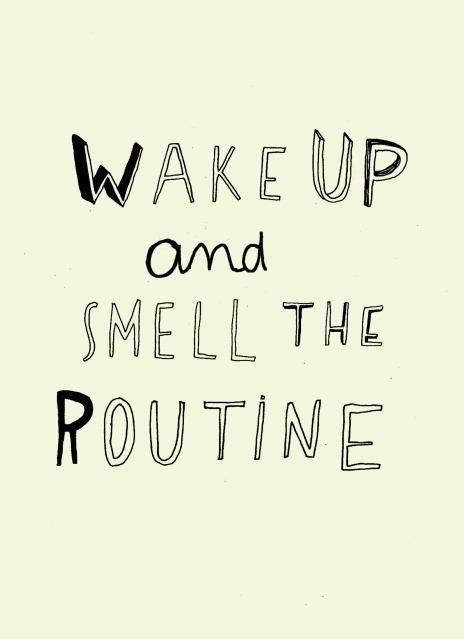 WAKE UP
and
SMELL THE
ROUTINE